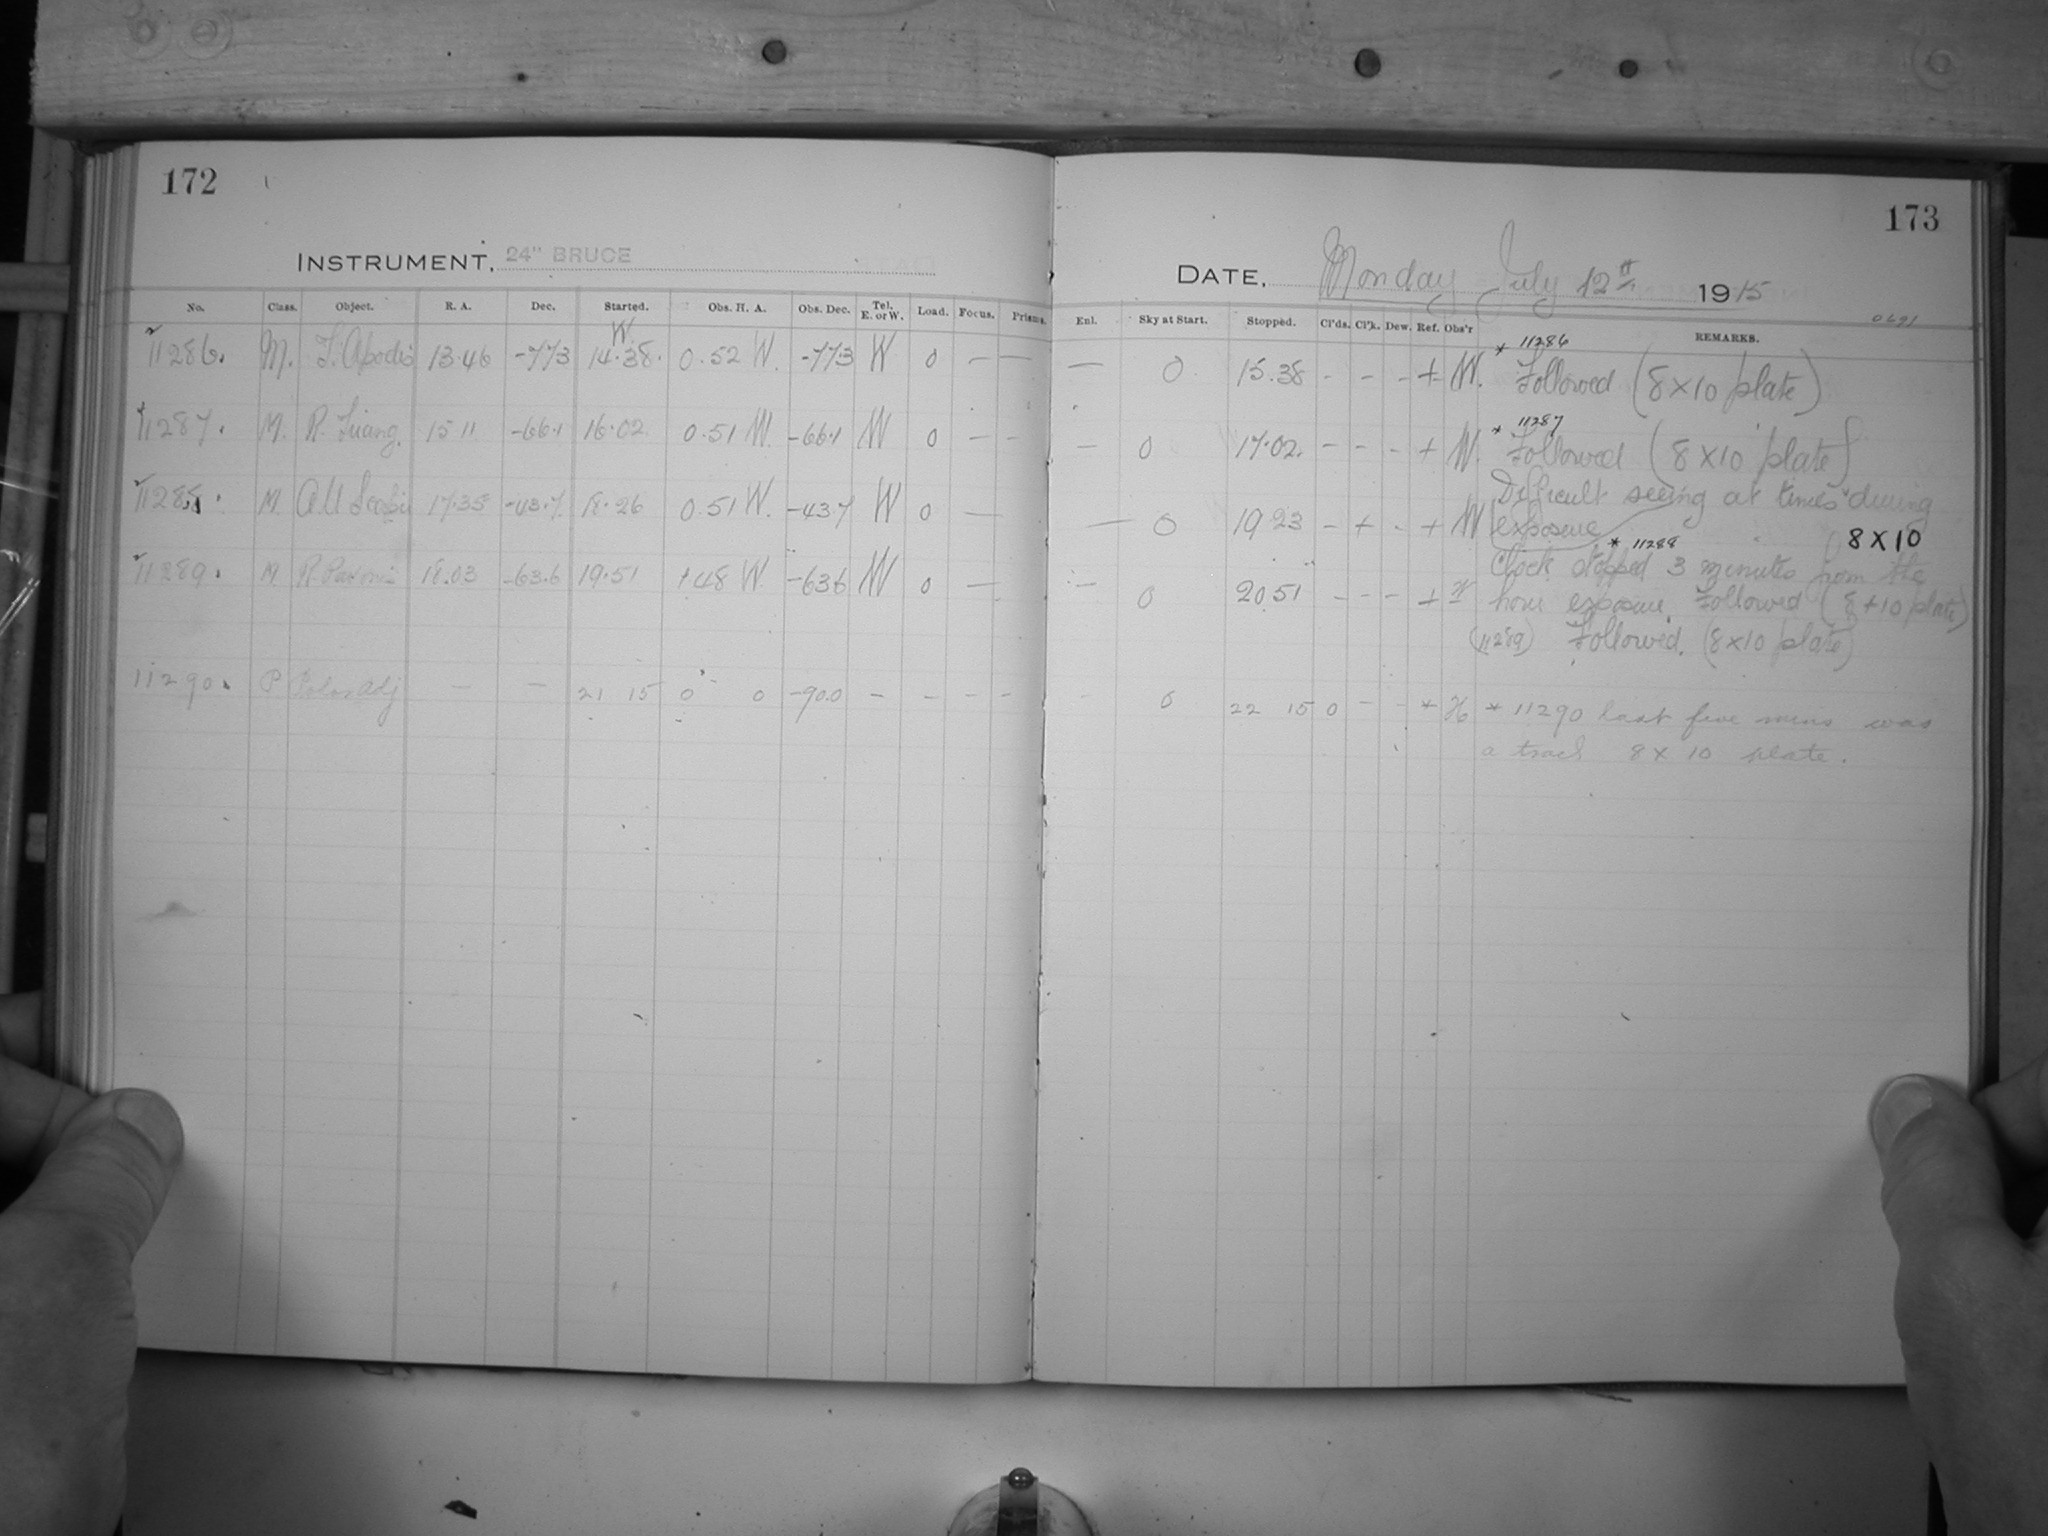 172
INSTRUMENT, 24" BRUCE
No. Class. Object. R. A. Dec. Started. Obs. H. A. Obs. Dec. Tel. E. or W. Load. Focus. Prisms.
W.
11286. M. T. Apodis 13.46 -77.3 14.38. 0.52 W. -77.3 W 0 — —
11287. M. R. Triang. 15 11 -66.1 16.02 0.51 W. -66.1 W 0 — —
11288. M. 17.35 -43.7 18.26 0.51 W. -43.7 W 0 —
11289. M. R. Pavonis 18.03 -63.6 19.51 1 48 W. -63.6 W 0 —
11290. P Polar Adj — — 21 15 0 0 -90.0 - - - -
173
DATE, Monday July 12th 1915
Enl. Sky at Start. Stopped. Cl'ds. Cl'k. Dew. Ref. Obs'r REMARKS.
— 0 15.38 - - - + W. * 11286 Followed (8x10 plate)
— 0 17.02. - - - + W. * 11287 Followed (8x10 plate)
Difficult seeing at times during
— 0 19 23 - + - + W exposure 8X10
* 11288
Clock stopped 3 minutes from the
— 0 20.51 - - - + hour exposure. Followed (8x10 plate)
(11289) Followed. (8x10 plate)
- 0 22 15 0 - - * H * 11290 last five mins was
a trail 8 x 10 plate.